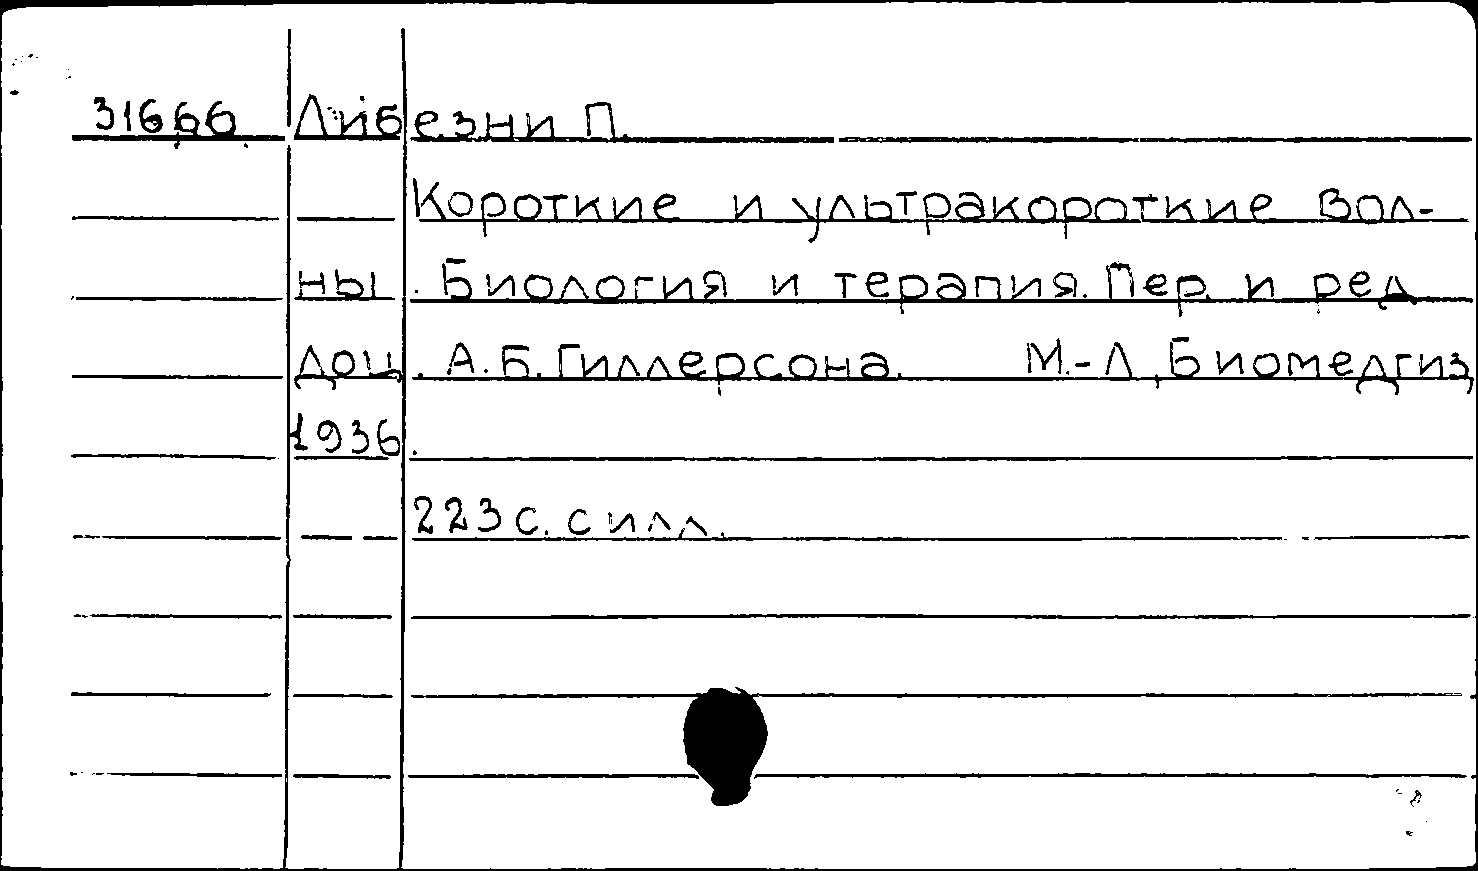 31666 Либезни П.
Короткие и ультракороткие вол-
ны. Биология и терапия. Пер. и ред
доц. А.Б.Гиллерсона. М.-Л, Биомедгиз,
1936.
223 с. с илл.